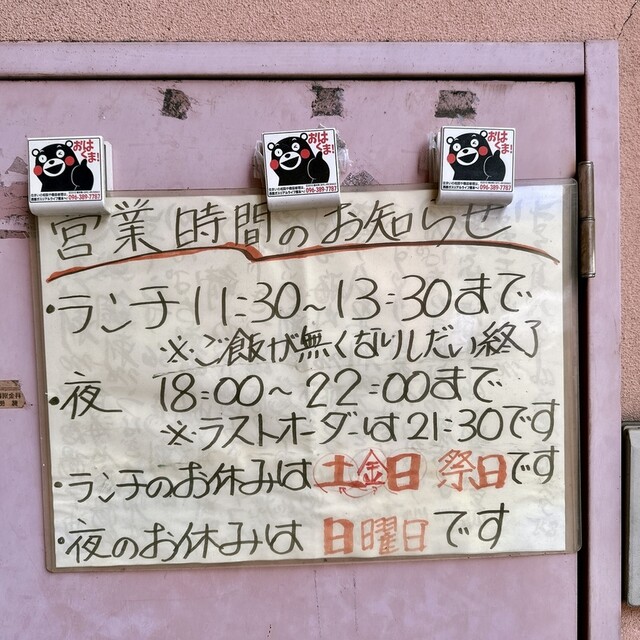 おはくま!
096-389-7787
おはくま!
096-389-7787
おはくま!
096-389-7787
営業時間のお知らせ
・ランチ 11:30~13:30まで
※ご飯が無くなりしだい終了
・夜 18:00~22:00まで
※ラストオーダーは21:30です
・ランチのお休みは土金日 祭日です
・夜のお休みは 日曜日です